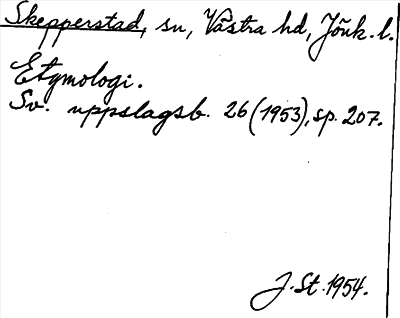 Skepperstad, sn, Västra hd, Jönk. l.
Etymologi.
Sv. uppslagsb. 26 (1953), sp. 207.
J. St. 1954.